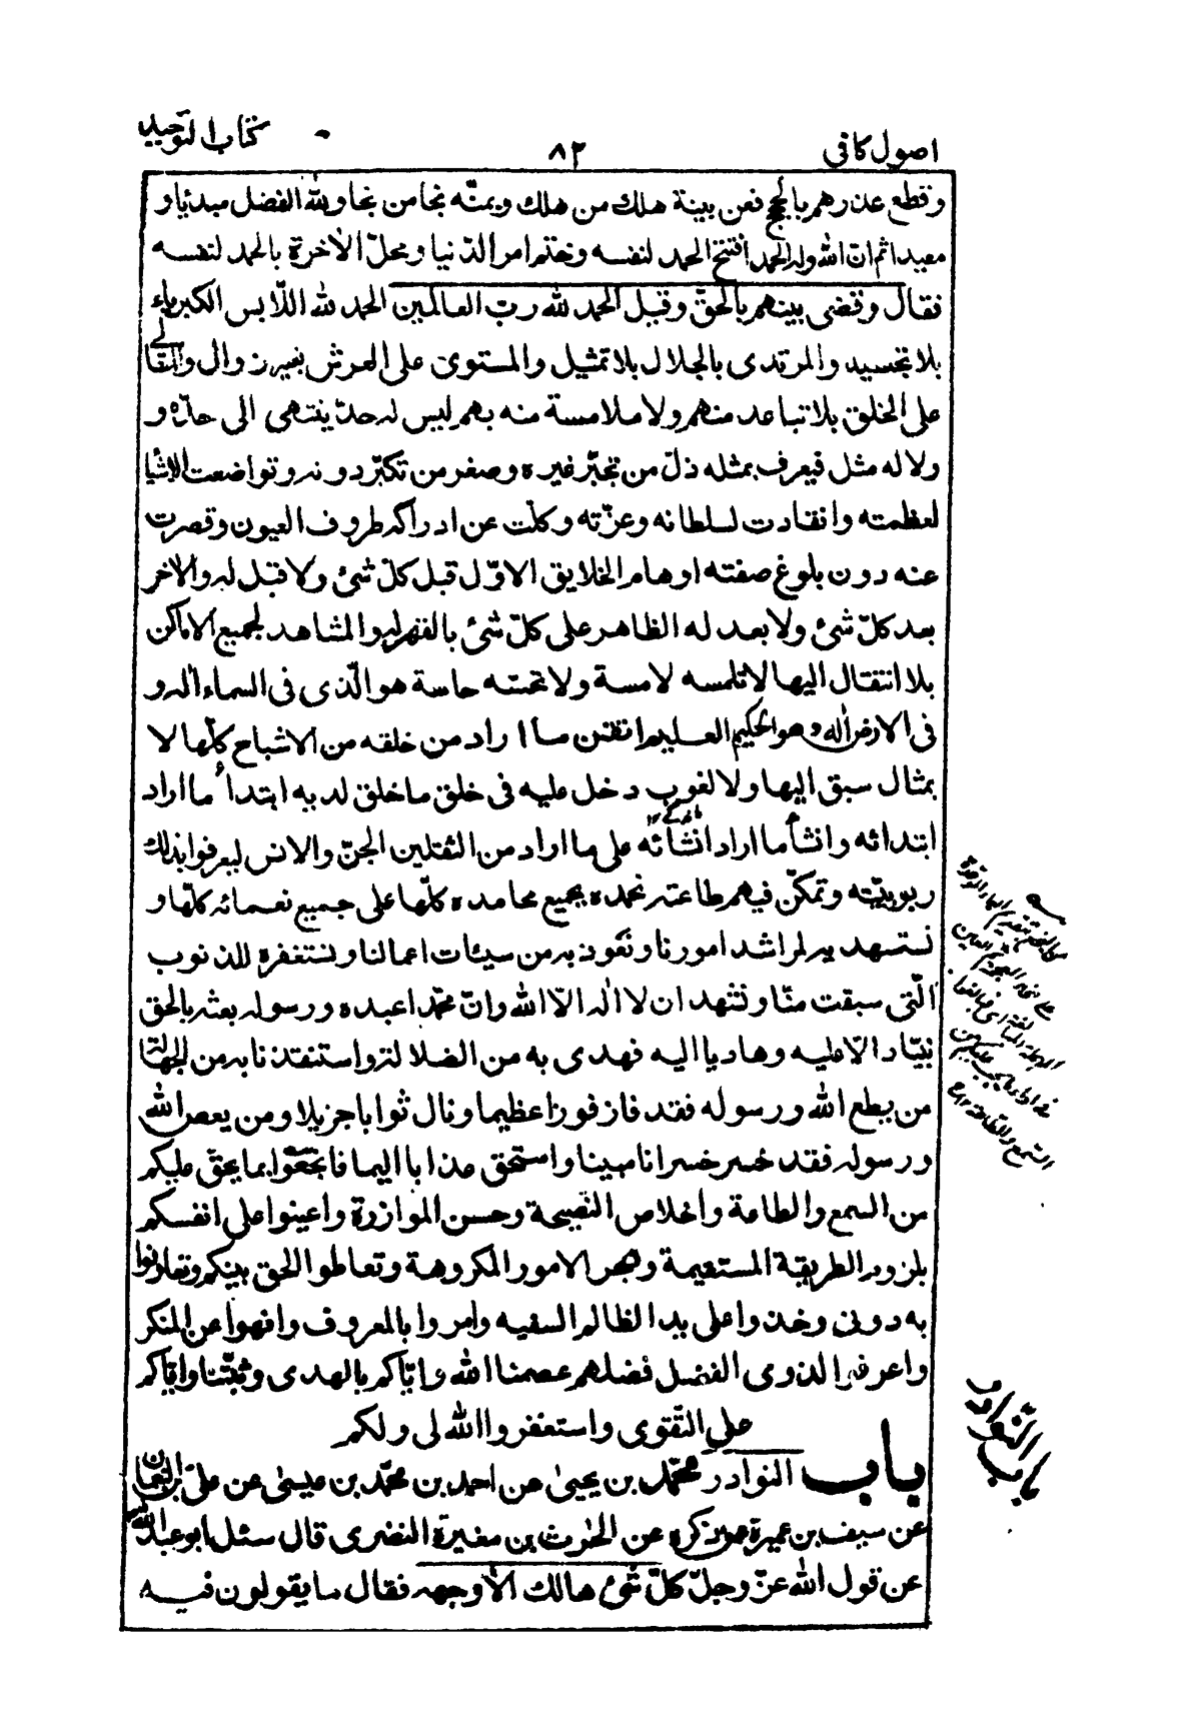 اصول كافى
٨٢
كتاب التوحيد
وقطع عذرهم بالحجج فعن بينة هلك من هلك وبمنّه نجا من نجا ولله الفضل مبدئا و
معيدا ثم ان الله وله الحمد افتتح الحمد لنفسه وختم امر الدّنيا ومحلّ الآخرة بالحمد لنفسه
فقال وقضى بينهم بالحقّ وقيل الحمد لله ربّ العالمين الحمد لله اللّابس الكبرياء
بلا تجسيد والمرتدى بالجلال بلا تمثيل والمستوى على العرش بغير زوال والمتعالى
على الخلق بلا تباعد منهم ولا ملامسة منه بهم ليس له حدّ ينتهى الى حدّه و
ولا له مثل فيعرف بمثله ذلّ من تجبّر غيره وصغر من تكبّر دونه وتواضعت الاشيا
لعظمته وانقادت لسلطانه وعزّته وكلّت عن ادراكه طروف العيون وقصرت
عنه دون بلوغ صفته اوهام الخلايق الاوّل قبل كلّ شئ ولا قبل له والآخر
بعد كلّ شئ ولا بعد له الظاهر على كلّ شئ بالقهر له والمشاهد لجميع الاماكن
بلا انتقال اليها لا تلمسه لامسة ولا تحسّه حاسة هو الّذى فى السماء اله و
فى الارض اله وهو الحكيم العليم اتقن ما اراد من خلقه من الاشباح كلّها لا
بمثال سبق اليها ولا لغوب دخل عليه فى خلق ما خلق لديه ابتدأ ما اراد
ابتدائه وانشأ ما اراد انشائه على ما اراد من الثقلين الجنّ والانس ليعرفوا بذلك
ربوبيّته وتمكّن فيهم طاعته نحمده بجميع محامده كلّها على جميع نعمائه كلّها و
نستهديه لمراشد امورنا ونعوذ به من سيئات اعمالنا ونستغفره للذنوب
الّتى سبقت منّا ونشهد ان لا اله الّا الله وانّ محمّدا عبده ورسوله بعثه بالحق
نبيّا دالّا عليه وهاديا اليه فهدى به من الضلالة واستنقذنا به من الجهالة
من يطع الله ورسوله فقد فاز فوزا عظيما ونال ثوابا جزيلا ومن يعص الله
ورسوله فقد خسر خسرانا مبينا واستحق عذابا اليما فانجعوا بما يحقّ عليكم
من السمع والطاعة واخلاص النّصيحة وحسن الموازرة واعينوا على انفسكم
بلزوم الطريقة المستقيمة وهجر الامور المكروهة وتعاطوا الحق بينكم وتعاونوا
به دونى وخذوا على يد الظالم السفيه وامروا بالمعروف وانهوا عن المنكر
واعرفوا لذوى الفضل فضلهم عصمنا الله وايّاكم بالهدى وثبّتنا وايّاكم
على التّقوى واستغفروا الله لى ولكم
باب النوادر محمّد بن يحيى عن احمد بن محمّد بن عيسى عن علىّ بن النعمان
عن سيف بن عميرة عمن ذكره عن الحرث بن مغيرة النضرى قال سئل ابو عبد الله
عن قول الله عزّ وجلّ كلّ شئ هالك الّا وجهه فقال ما يقولون فيه
باب النّوادر